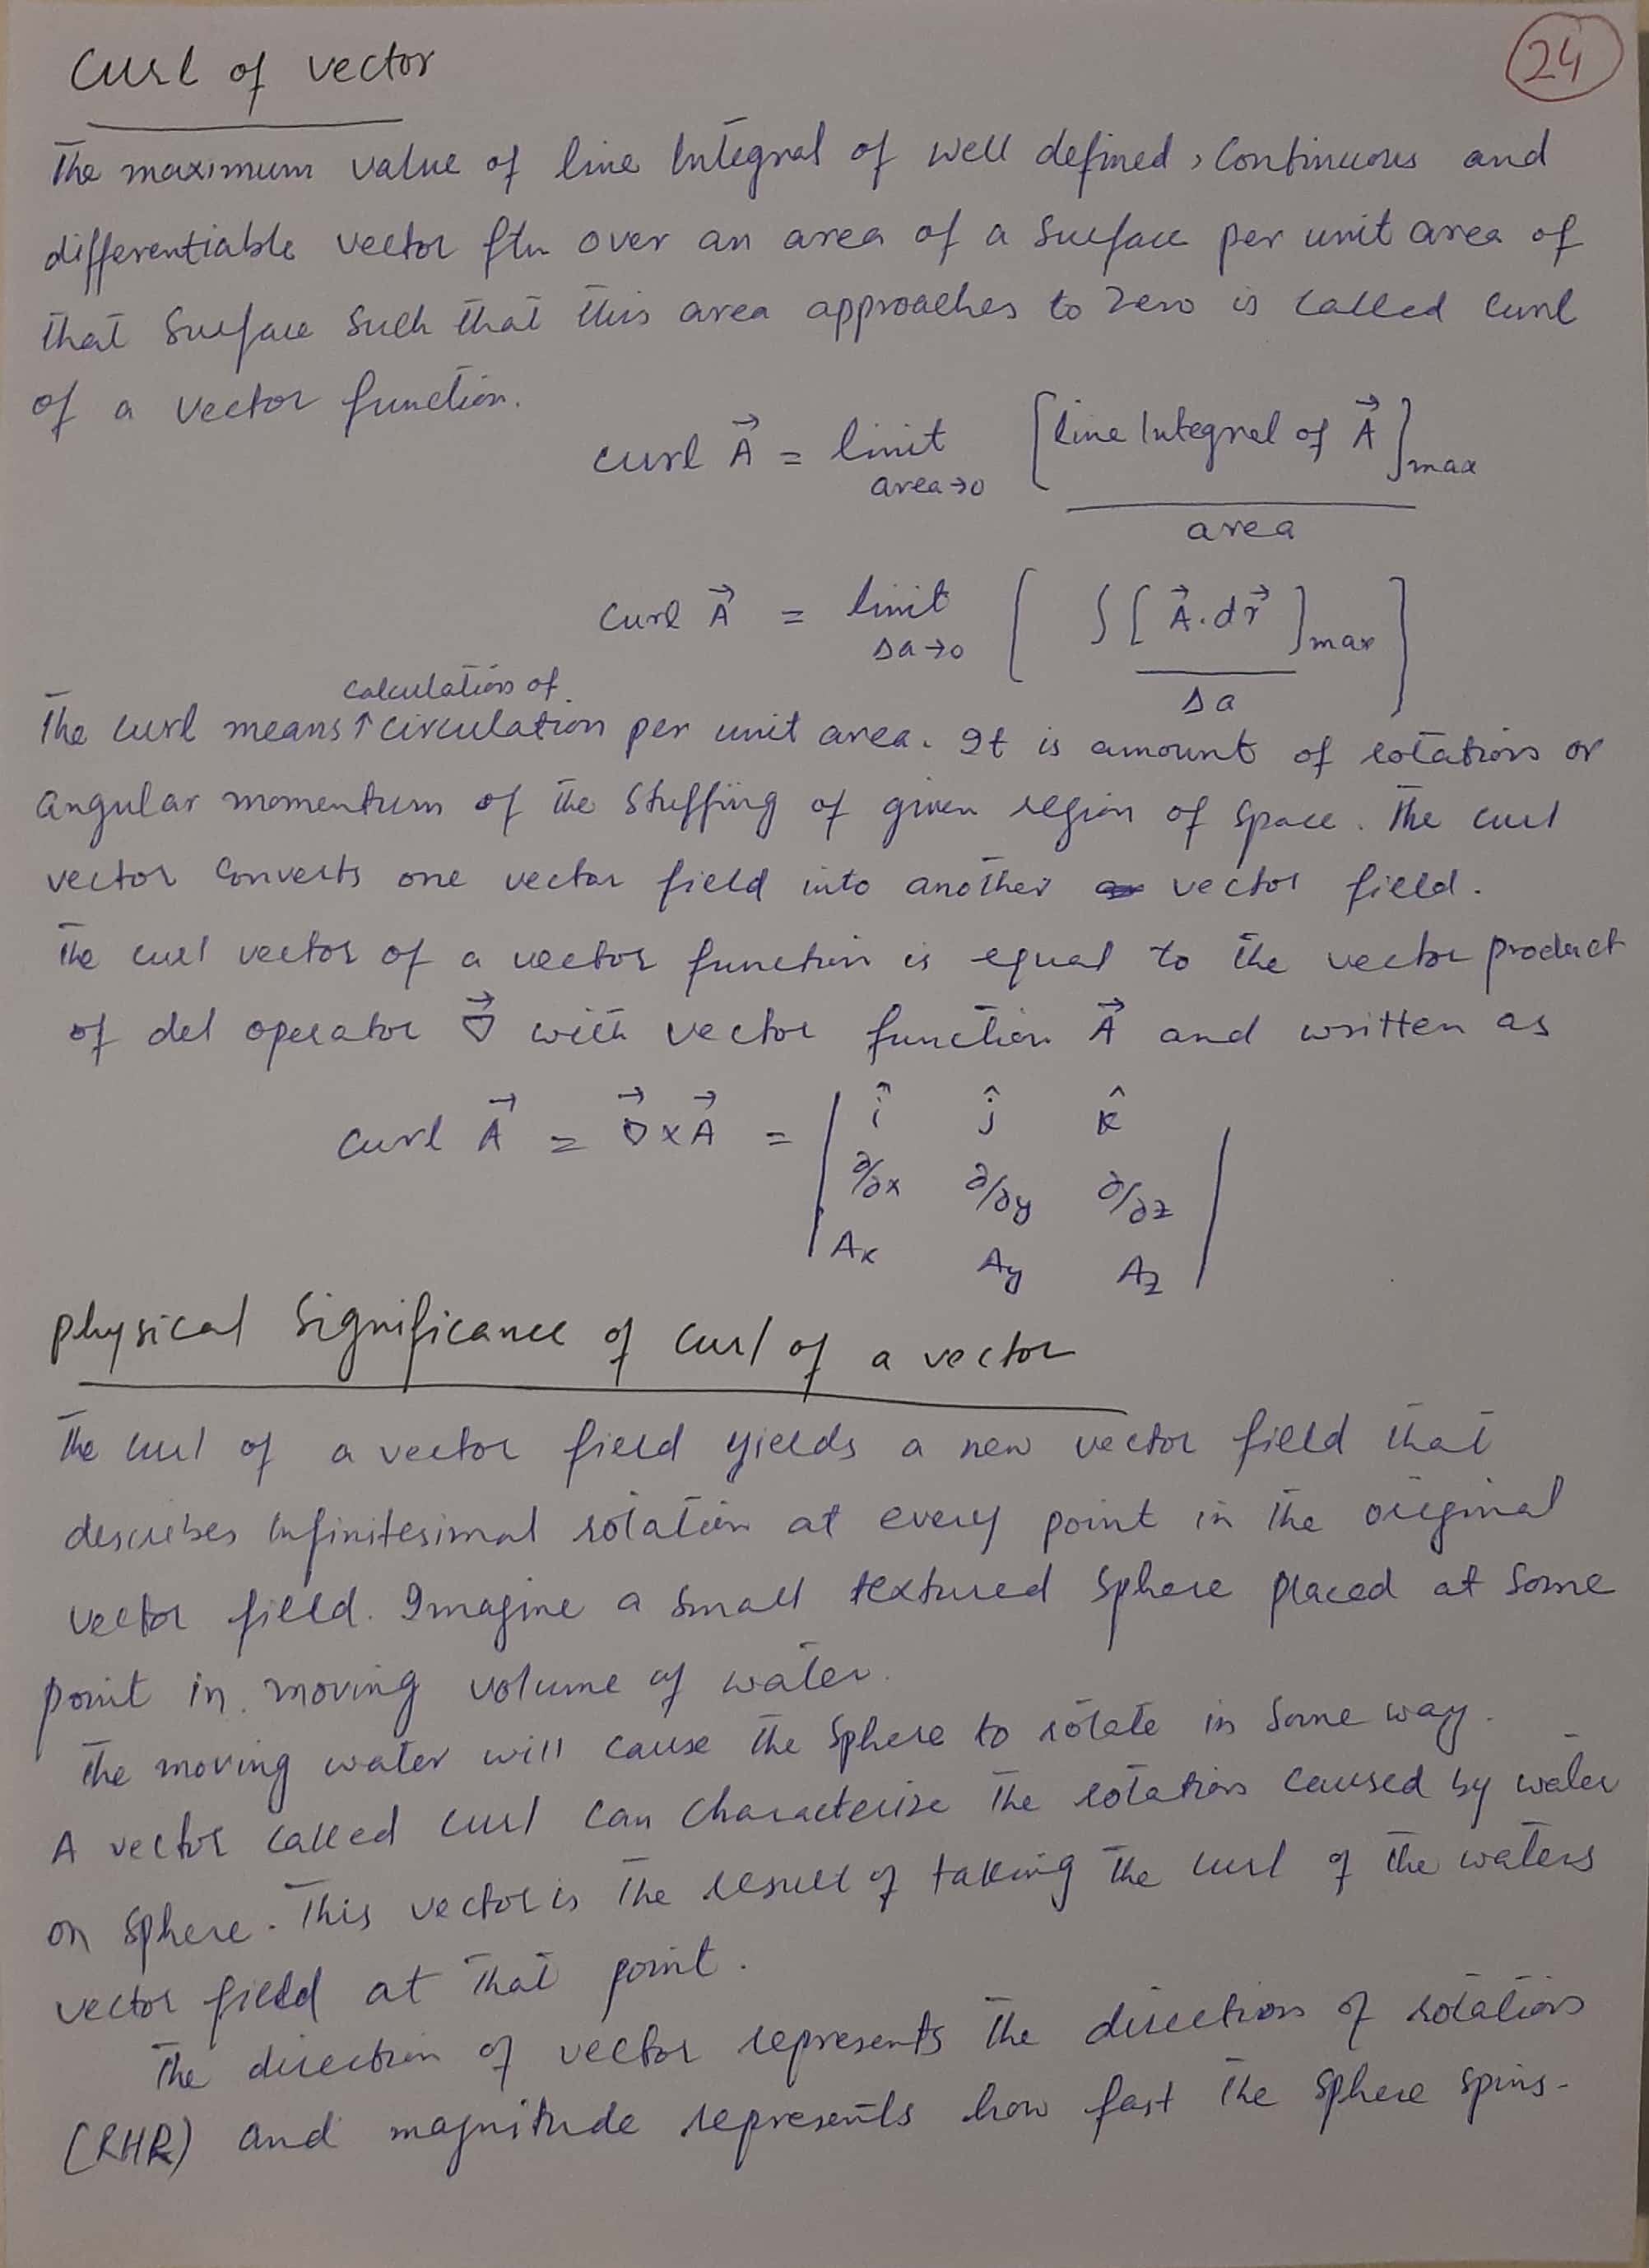 24
Curl of vector
The maximum value of line Integral of well defined, Continuous and
differentiable vector ftn over an area of a Surface per unit area of
that Surface such that this area approaches to zero is called curl
of a vector function.
curl A⃗ = limit area→0 [line Integral of A⃗]max / area
Curl A⃗ = limit Δa→0 [ ∫[A⃗.dr⃗]max / Δa ]
calculation of
The curl means ↑ circulation per unit area. It is amount of rotation or
angular momentum of the stuffing of given region of space. The curl
vector converts one vector field into another vector field.
The curl vector of a vector function is equal to the vector product
of del operator ∇⃗ with vector function A⃗ and written as
curl A⃗ = ∇⃗ x A⃗ = | î ĵ k̂
∂/∂x ∂/∂y ∂/∂z
Ax Ay Az |
physical Significance of Curl of a vector
The curl of a vector field yields a new vector field that
describes infinitesimal rotation at every point in the original
vector field. Imagine a small textured sphere placed at some
point in moving volume of water.
The moving water will cause the sphere to rotate in some way.
A vector called curl can characterize the rotation caused by water
on sphere. This vector is the result of taking the curl of the waters
vector field at that point.
The direction of vector represents the direction of rotation
(RHR) and magnitude represents how fast the sphere spins.